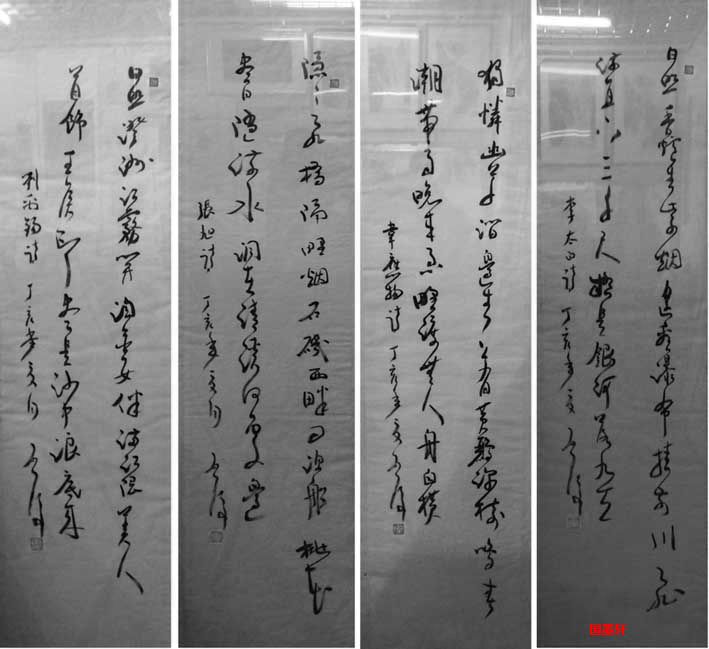 日照香炉生紫烟遥看瀑布挂前川飞
流直下三千尺疑是银河落九天
李太白诗 丁亥年夏
独怜幽草涧边生上有黄鹂深树鸣春
潮带雨晚来急野渡无人舟自横
韦应物诗 丁亥年夏
隐隐飞桥隔野烟石矶西畔问渔船桃花
尽日随流水洞在清溪何处边
张旭诗 丁亥年夏月
日照澄洲江雾开淘金女伴满江隈美人
首饰王侯印尽是沙中浪底来
刘禹锡诗 丁亥年夏月